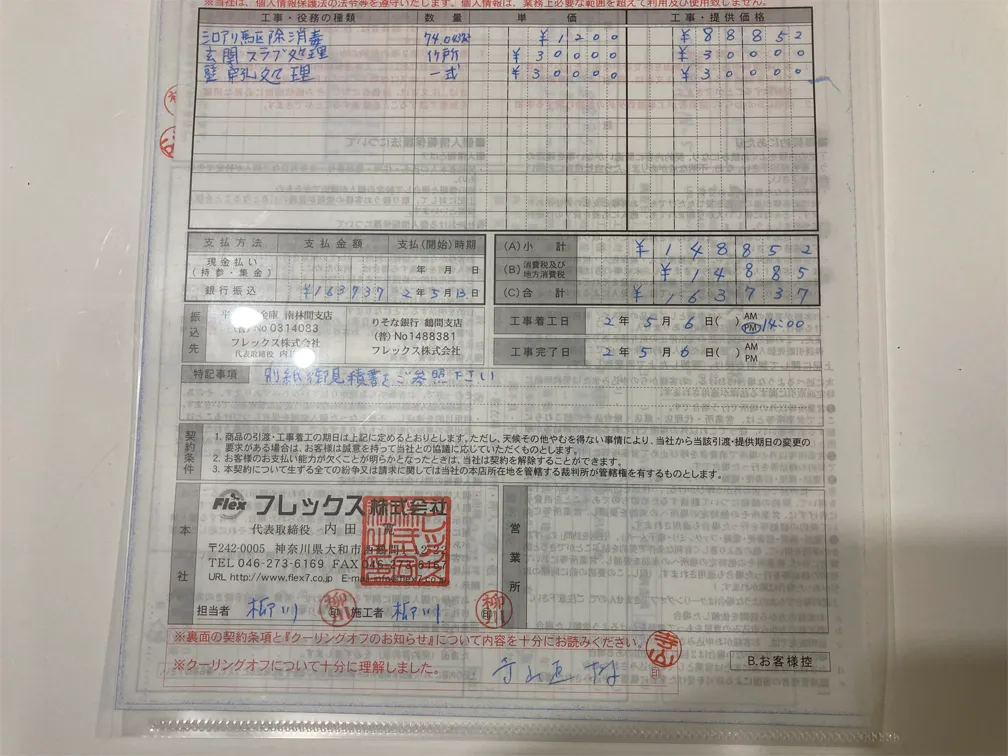 ※当社は、個人情報保護法の法令等を遵守いたします。個人情報は、業務上必要な範囲を超えて利用及び使用致しません。
工事・役務の種類 数量 単価 工事・提供価格
シロアリ駆除消毒 ¥1200 ¥88852
玄関スラブ処理 ¥30000 ¥30000
壁穿孔処理 一式 ¥30000 ¥30000
支払方法 支払金額 支払(開始)時期
現金払い
(持参・集金) 年 月 日
銀行振込 ¥163737 2年5月13日
(A)小計 ¥148852
(B)消費税及び
地方消費税 ¥14885
(C)合計 ¥163737
振込先
金庫 南林間支店
(普)No0314083
フレックス株式会社
代表取締役 内
りそな銀行 鶴間支店
(普)No1488381
フレックス株式会社
工事着工日 2年5月6日( ) AM PM 14:00
工事完了日 2年5月6日( ) AM PM
特記事項 別紙御見積書をご参照下さい
契約条件
1. 商品の引渡・工事着工の期日は上記に定めるとおりとします。ただし、天候その他やむを得ない事情により、当社から当該引渡・提供期日の変更の
要求がある場合は、お客様は誠意を持って当社との協議に応じていただくものとします。
2. お客様のお支払い能力が欠くことが明らかとなったときは、当社は契約を解除することができます。
3. 本契約について生ずる全ての紛争又は請求に関しては当社の本店所在地を管轄する裁判所が管轄権を有するものとします。
本社
Flex フレックス株式会社
代表取締役 内田
〒242-0005 神奈川県大和市西鶴間
TEL 046-273-6169 FAX 046-273-6167
URL http://www.flex7.co.jp E-mail info@flex7.co.jp
担当者 柳川 印 施工者 柳川 印
柳川
柳川
営業所
※裏面の契約条項と『クーリングオフのお知らせ』について内容を十分にお読みください。
※クーリングオフについて十分に理解しました。
印
B.お客様控